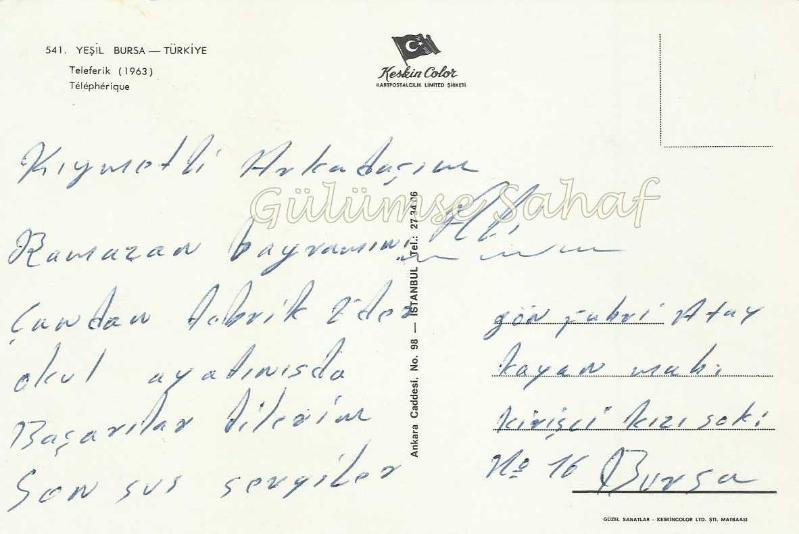 541. YEŞİL BURSA — TÜRKİYE
Teleferik (1963)
Téléphérique
Keskin Color
KARTPOSTALCILIK LIMITED ŞİRKETİ
Gülümse Sahaf
Kıymetli Arkadaşım
Ramazan bayramını
Çandan tebrik Eder
okul ayatınısda
Başarılar dilerim
Son sus sevgiler
Ankara Caddesi, No. 98 — İSTANBUL Tel.: 27 34 06
gön Atay
kayan mah.
kirişçi kızı
No 16 Bursa
GÜZEL SANATLAR - KESKİNCOLOR LTD. ŞTİ. MATBAASI